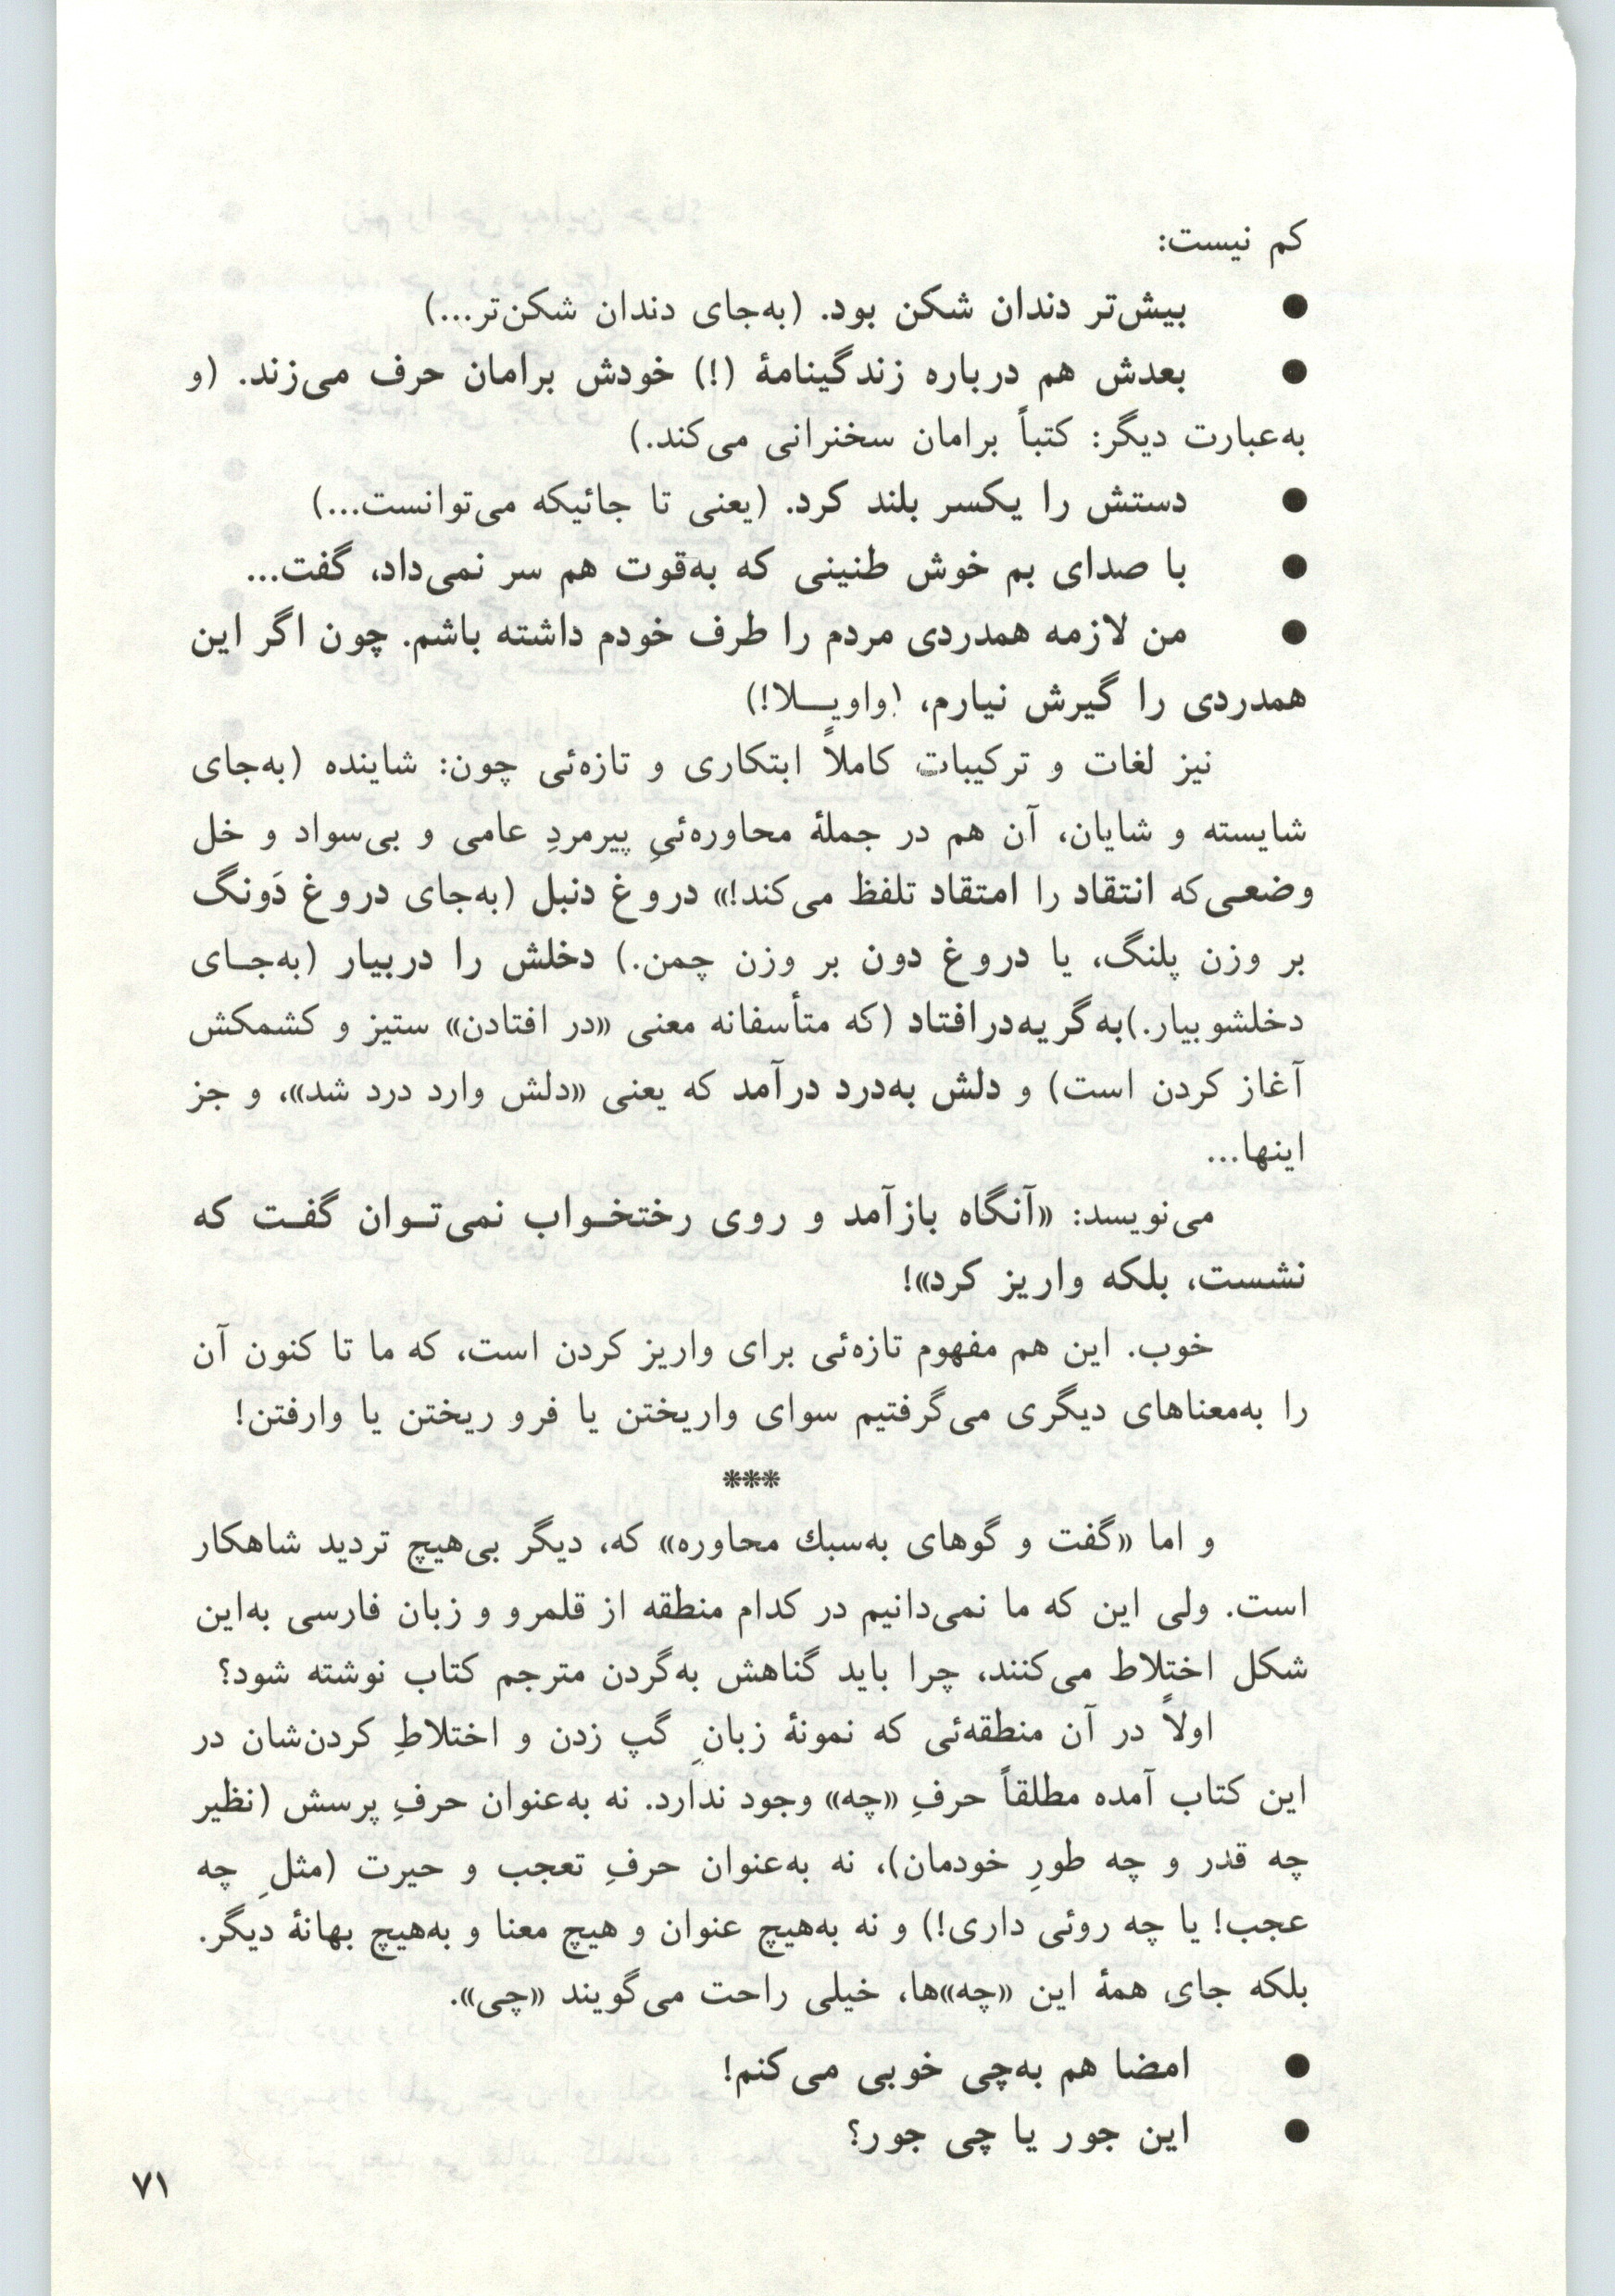 کم نیست:
● بیش‌تر دندان شکن بود. (به‌جای دندان شکن‌تر...)
● بعدش هم درباره زندگینامهٔ (!) خودش برامان حرف می‌زند. (و
به‌عبارت دیگر: کتباً برامان سخنرانی می‌کند.)
● دستش را یکسر بلند کرد. (یعنی تا جائیکه می‌توانست...)
● با صدای بم خوش طنینی که به‌قوت هم سر نمی‌داد، گفت...
● من لازمه همدردی مردم را طرف خودم داشته باشم. چون اگر این
همدردی را گیرش نیارم، (واویـلا!)
نیز لغات و ترکیبات کاملاً ابتکاری و تازه‌ئی چون: شاینده (به‌جای
شایسته و شایان، آن هم در جملهٔ محاوره‌ئیِ پیرمردِ عامی و بی‌سواد و خل
وضعی‌که انتقاد را امتقاد تلفظ می‌کند!» دروغ دنبل (به‌جای دروغ دَونگ
بر وزن پلنگ، یا دروغ دون بر وزن چمن.) دخلش را دربیار (به‌جـای
دخلشو بیار.)به‌گریه‌درافتاد (که متأسفانه معنی «در افتادن» ستیز و کشمکش
آغاز کردن است) و دلش به‌درد درآمد که یعنی «دلش وارد درد شد»، و جز
اینها...
می‌نویسد: «آنگاه بازآمد و روی رختخـواب نمی‌تـوان گفـت که
نشست، بلکه واریز کرد»!
خوب. این هم مفهوم تازه‌ئی برای واریز کردن است، که ما تا کنون آن
را به‌معناهای دیگری می‌گرفتیم سوای واریختن یا فرو ریختن یا وارفتن!
***
و اما «گفت و گوهای به‌سبك محاوره» که، دیگر بی‌هیچ تردید شاهکار
است. ولی این که ما نمی‌دانیم در کدام منطقه از قلمرو و زبان فارسی به‌این
شکل اختلاط می‌کنند، چرا باید گناهش به‌گردن مترجم کتاب نوشته شود؟
اولاً در آن منطقه‌ئی که نمونهٔ زبانِ گپ زدن و اختلاطِ کردن‌شان در
این کتاب آمده مطلقاً حرفِ «چه» وجود ندارد. نه به‌عنوان حرفِ پرسش (نظیر
چه قدر و چه طورِ خودمان)، نه به‌عنوان حرفِ تعجب و حیرت (مثلِ چه
عجب! یا چه روئی داری!) و نه به‌هیچ عنوان و هیچ معنا و به‌هیچ بهانهٔ دیگر.
بلکه جای همهٔ این «چه»ها، خیلی راحت می‌گویند «چی».
● امضا هم به‌چی خوبی می‌کنم!
● این جور یا چی جور؟
۷۱